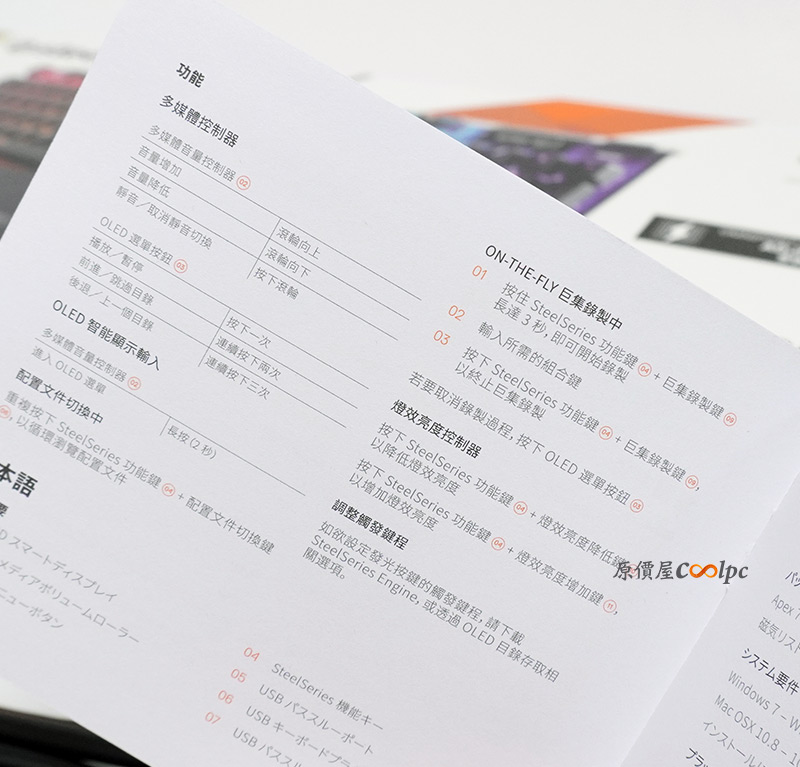 功能
多媒體控制器
多媒體音量控制器 02
音量增加 滾輪向上
音量降低 滾輪向下
靜音／取消靜音切換 按下滾輪
OLED 選單按鈕 03
播放／暫停 按下一次
前進／跳過目錄 連續按下兩次
後退／上一個目錄 連續按下三次
OLED 智能顯示輸入
多媒體音量控制器 02
進入 OLED 選單 長按 (2 秒)
配置文件切換中
重複按下 SteelSeries 功能鍵 04 + 配置文件切換鍵
，以循環瀏覽配置文件
ON-THE-FLY 巨集錄製中
01 按住 SteelSeries 功能鍵 04 + 巨集錄製鍵 09
長達 3 秒，即可開始錄製
02 輸入所需的組合鍵
03 按下 SteelSeries 功能鍵 04 + 巨集錄製鍵 09，
以終止巨集錄製
若要取消錄製過程，按下 OLED 選單按鈕 03
燈效亮度控制器
按下 SteelSeries 功能鍵 04 + 燈效亮度降低鍵
以降低燈效亮度
按下 SteelSeries 功能鍵 04 + 燈效亮度增加鍵 11，
以增加燈效亮度
調整觸發鍵程
如欲設定發光按鍵的觸發鍵程，請下載
SteelSeries Engine，或透過 OLED 目錄存取相
關選項。
原價屋coolpc
本語
要
D スマートディスプレイ
メディアボリュームローラー
ニューボタン
04 SteelSeries 機能キー
05 USB パススルーポート
06 USB キーボードプラ
07 USB パススル
パッ
Apex
磁気リスト
システム要件
Windows 7 –
Mac OSX 10.8 –
インストール